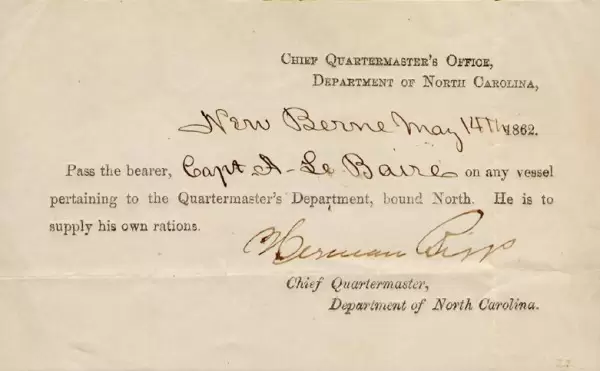 CHIEF QUARTERMASTER'S OFFICE,
DEPARTMENT OF NORTH CAROLINA,
New Berne May 14th 1862.
Pass the bearer, Capt A- Le Baire on any vessel
pertaining to the Quartermaster's Department, bound North. He is to
supply his own rations.
Herman Biggs
Chief Quartermaster,
Department of North Carolina.